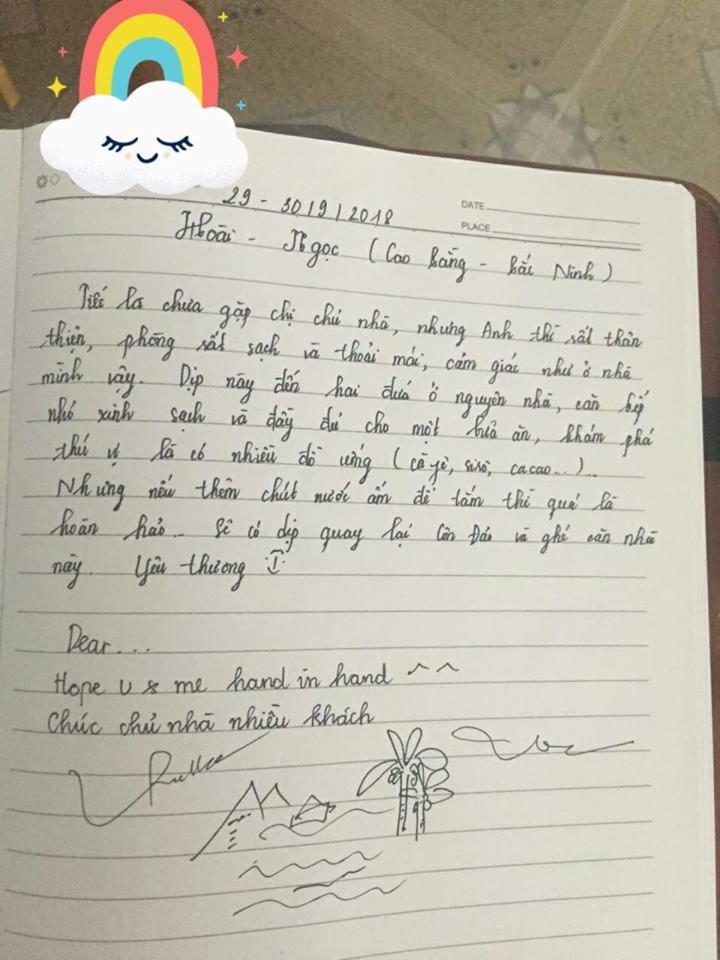 DATE
PLACE
29 - 30/9/2018
Hoài - Ngọc (Cao Bằng - Bắc Ninh)
Tiếc là chưa gặp chị chủ nhà, nhưng Anh thì rất thân
thiện, phòng rất sạch và thoải mái, cảm giác như ở nhà
mình vậy. Dịp này đến hai đứa ở nguyên nhà, căn bếp
nhỏ xinh sạch và đầy đủ cho một bữa ăn, khám phá
thú vị là có nhiều đồ uống (cà fê, siro, ca cao...)...
Nhưng nếu thêm chút nước ấm để tắm thì quá là
hoàn hảo... Sẽ có dịp quay lại Côn Đảo và ghé căn nhà
này. Yêu thương
Dear...
Hope U & me hand in hand ^^
Chúc chủ nhà nhiều khách